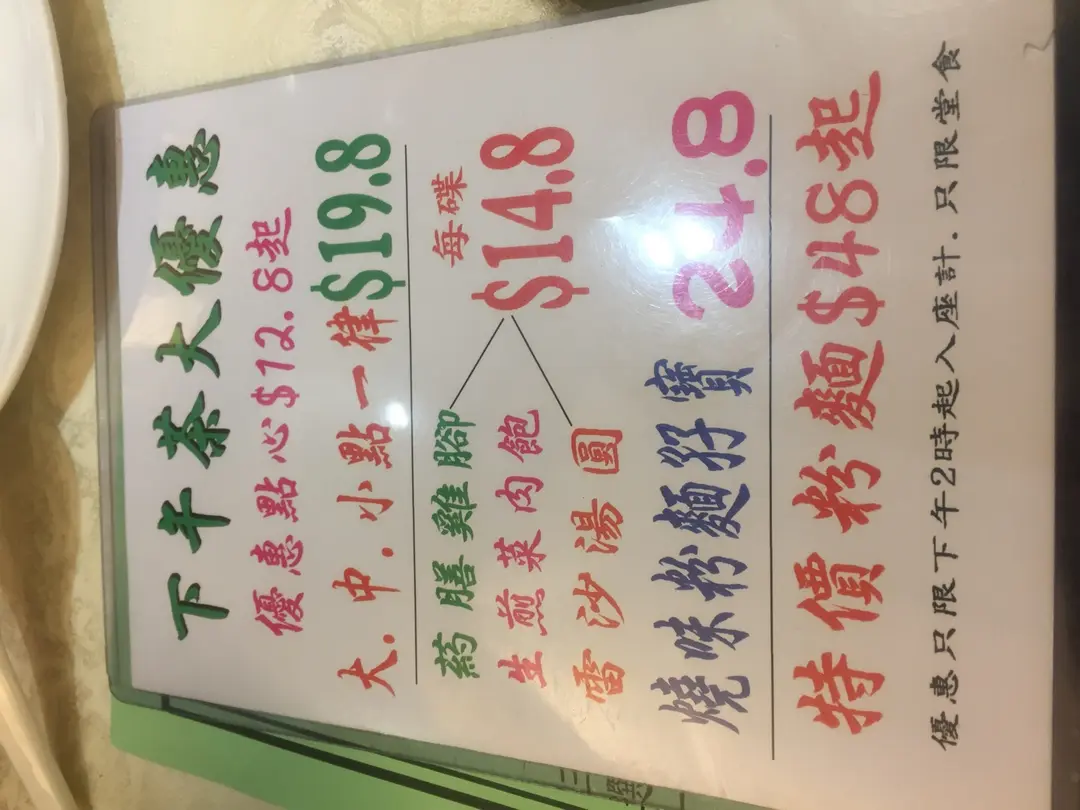 下午茶大優惠
優惠點心$12.8起
大.中.小點一律$19.8
每碟
$14.8
葯膳雞腳
生煎菜肉飽
雷沙湯圓
燒味粉麵孖寶 24.8
特價粉麵$48起
優惠只限下午2時起入座計.只限堂食